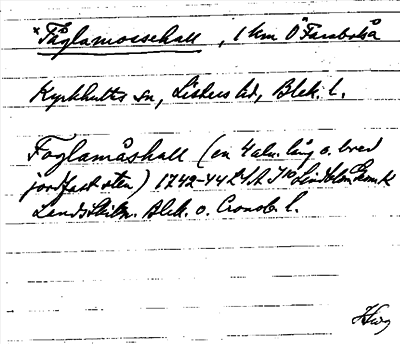 *Fåglamossehall, 1 km Ö Farabola
Kyrkhults sn, Listers hd, Blek. l.
Foglamåshall (en 4 aln. lång o. bred
jordfast sten) 1742-44 LSA
Landsskiln. Blek. o. Cronob. l.